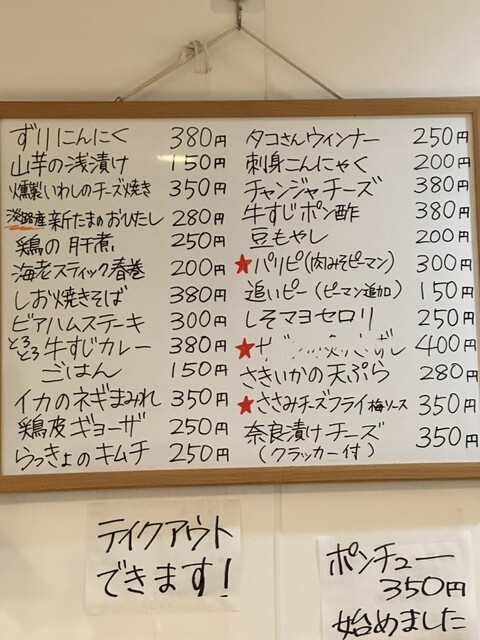 ずりにんにく 380円
山芋の浅漬け 150円
燻製いわしのチーズ焼き 350円
淡路産新たまのおひたし 280円
鶏の肝煮 250円
海老スティック春巻 200円
しお焼きそば 380円
ビアハムステーキ 300円
とろとろ牛すじカレー 380円
ごはん 150円
イカのネギまみれ 350円
鶏皮ギョーザ 250円
らっきょのキムチ 250円
タコさんウィンナー 250円
刺身こんにゃく 200円
チャンジャチーズ 380円
牛すじポン酢 380円
豆もやし 200円
★パリピ(肉みそピーマン) 300円
追いピー(ピーマン追加) 150円
しそマヨセロリ 250円
★ 400円
さきいかの天ぷら 280円
★ささみチーズフライ梅ソース 350円
奈良漬けチーズ 350円
(クラッカー付)
テイクアウト
できます!
ポンチュー
350円
始めました